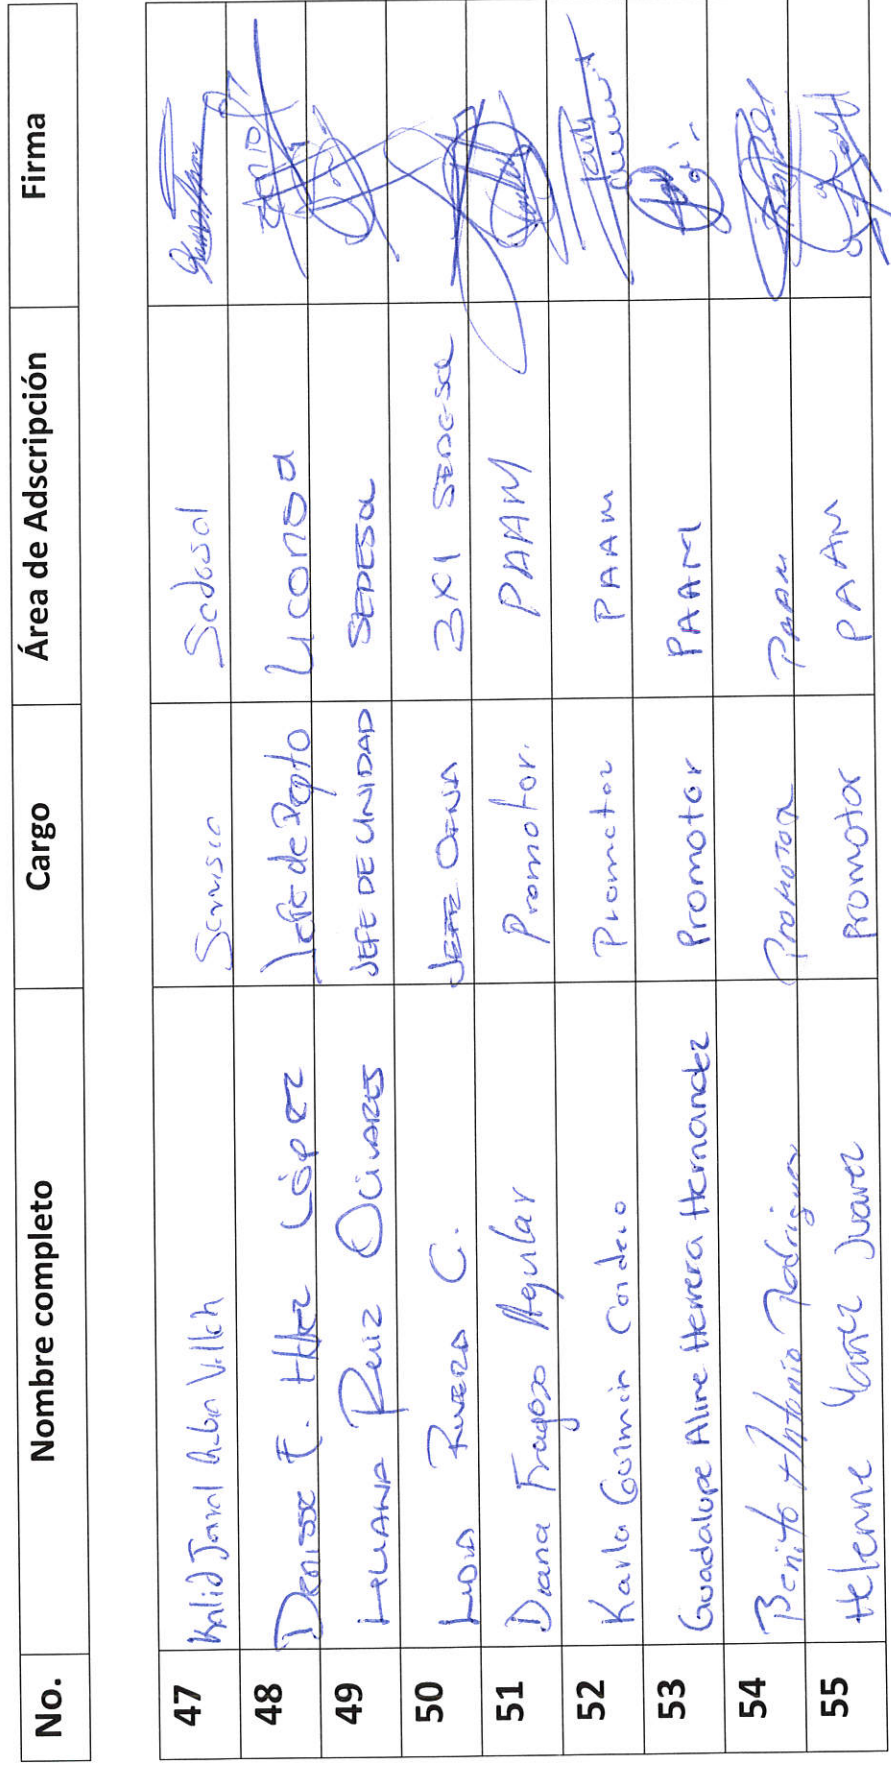 No. Nombre completo Cargo Área de Adscripción Firma
47 Kalid Sedesol
48 Denisse E. Hdez López Jefe de Depto Liconsa
49 Liliana Ruiz Olivares JEFE DE UNIDAD SEDESOL
50 Lidia Rivera C. JEFE OFNA 3X1 SEDESOL
51 Diana Fragoso Aguilar Promotor. PAAM
52 Karla Cordero Promotor PAAM
53 Guadalupe Aline Herrera Hernandez Promotor PAAM
54 Benito Antonio Rodriguez Promotor PAAM
55 Helenne Yañez Juarez Promotor PAAM